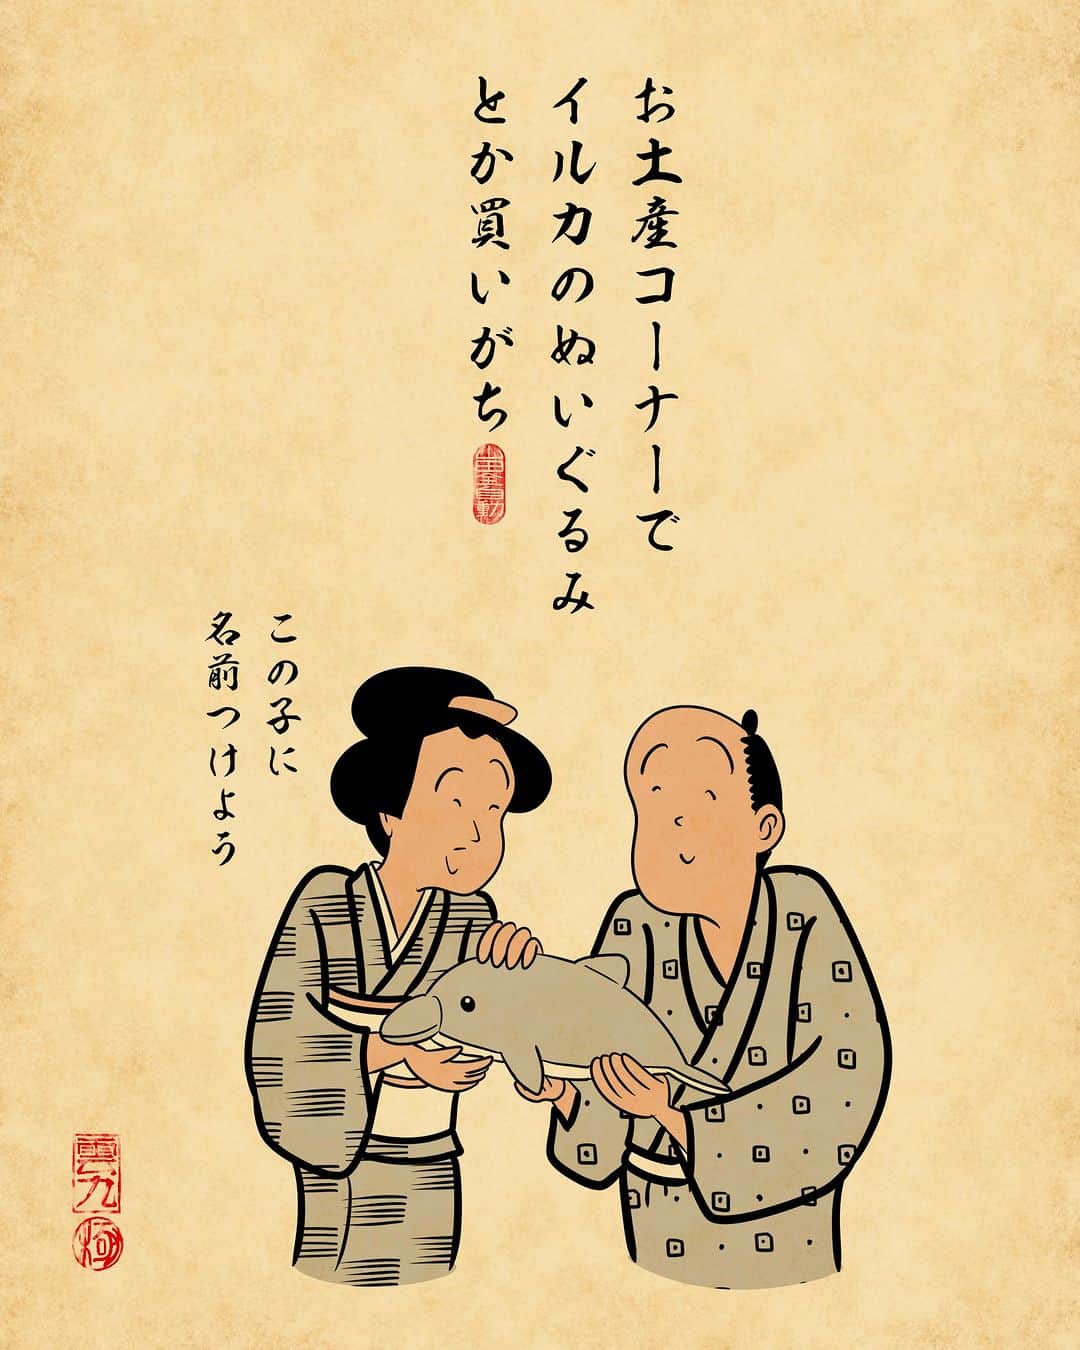 お土産コーナーで
イルカのぬいぐるみ
とか買いがち
この子に
名前つけよう